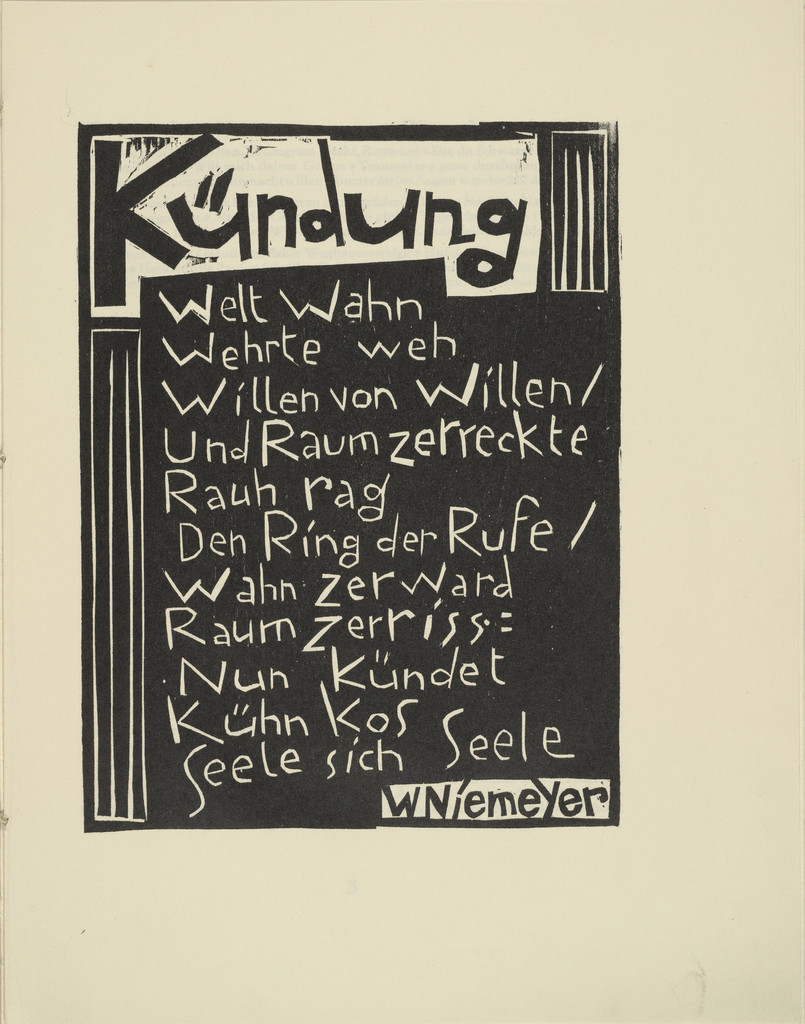 Kündung
Welt Wahn
Wehrte weh
Willen von Willen/
Und Raum zerreckte
Rauh rag
Den Ring der Rufe/
Wahn zerward
Raum zerriss:=
Nun Kündet
Kühn Kos
Seele sich Seele
WNiemeyer